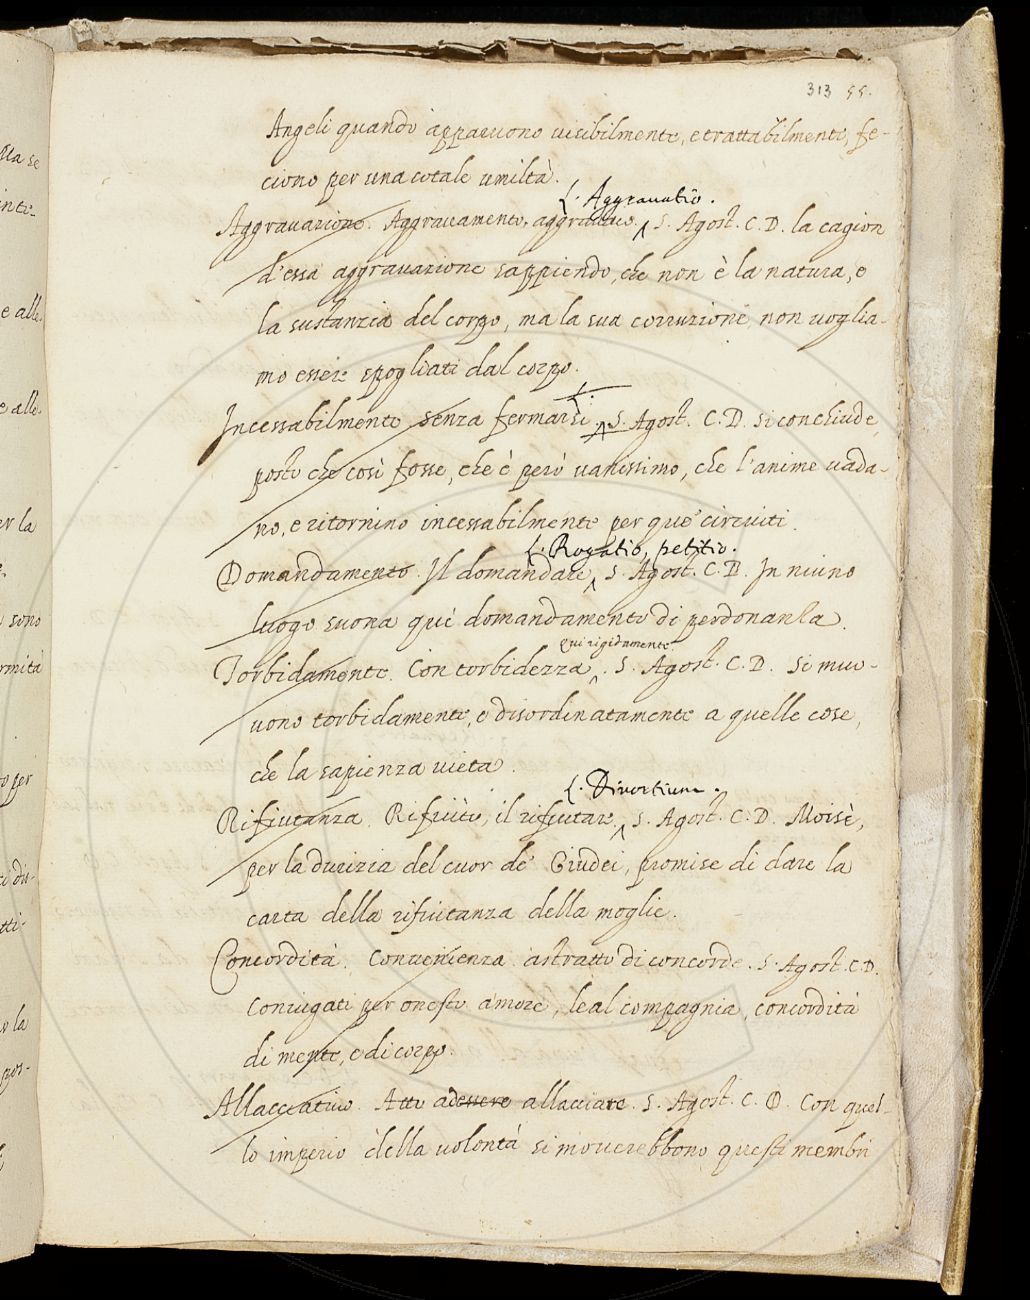 313 55.
Angeli quando apparvono visibilmente, e trattabilmente, fe-
ciono per una cotale umiltà.
L. Aggravatio.
Aggravazione. Aggravamento, aggravare, S. Agost. C. D. la cagion
d'essa aggravazione sappiendo, che non è la natura, e
la sustanzia del corpo, ma la sua corruzione, non voglia-
mo essere spogliati dal corpo.
Incessabilmente senza fermarsi. S. Agost. C. D. si conchiude,
posto che così fosse, che è però vanissimo, che l'anime vada-
no, e ritornino incessabilmente per que' circuiti.
L. Rogatio, petitio.
Domandamento. Il domandare, S. Agost. C. D. In niuno
luogo suona quì domandamento di perdonanza.
qui rigidamente
Torbidamente. Con torbidezza. S. Agost. C. D. Si muo-
vono torbidamente, e disordinatamente a quelle cose,
che la sapienza vieta.
L. Divortium.
Rifiutanza. Rifiuto, il rifiutare, S. Agost. C. D. Moisè,
per la durizia del cuor de' Giudei, promise di dare la
carta della rifiutanza della moglie.
Concordità. Convenienza astratto di concorde. S. Agost. C. D.
Coniugati per onesto amore, leal compagnia, concordità
di mente, e di corpo.
Allacciativo. Atto ad essere allacciare. S. Agost. C. D. Con quel-
lo imperio della volontà si moverebbono questi membri